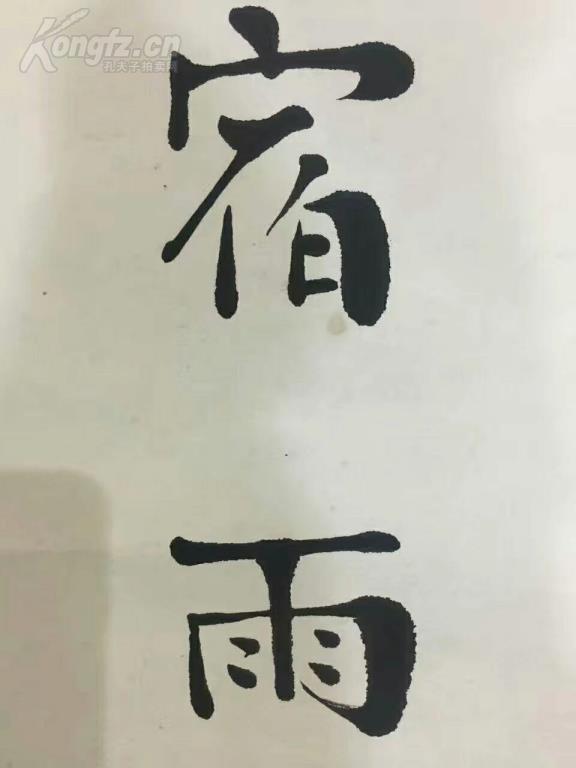 Kongfz.cn
孔夫子拍卖网
宿
雨